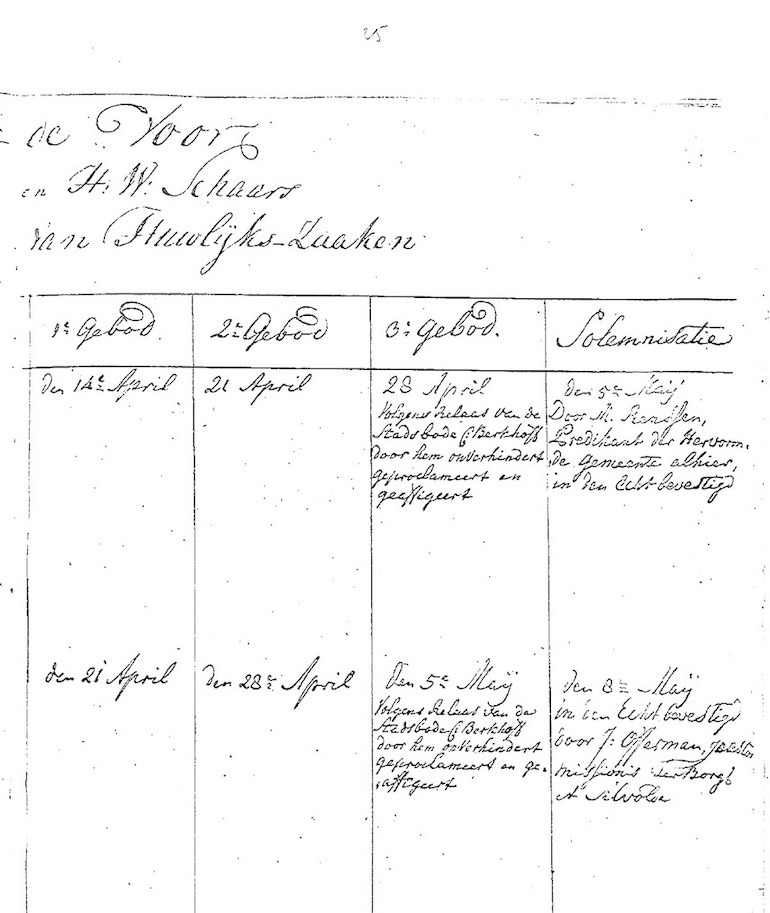 25
de Voorz
en H: W: Schaars
van Huwlijks-Zaaken
1e Gebod.
2e Gebod
3e Gebod.
Solemnisatie
den 14e April
21 April
28 April
Volgens Relaas van de
Stads bode G Berkhoff
door hem onverhindert
geproclameert en
geaffigeert
den 5e Maÿ
Door M.
Predikant der Hervorm-
de Gemeente alhier,
in den Echt bevestigd
den 21 April
den 28e April
den 5e Maÿ
Volgens Relaas van de
Stadsbode G Berkhoff
door hem onverhindert
geproclameert en ge-
affigeert
den 8e Maÿ
in den Echt bevestigd
door J: Offerman,
missionis TerBorgh
et Silvolde